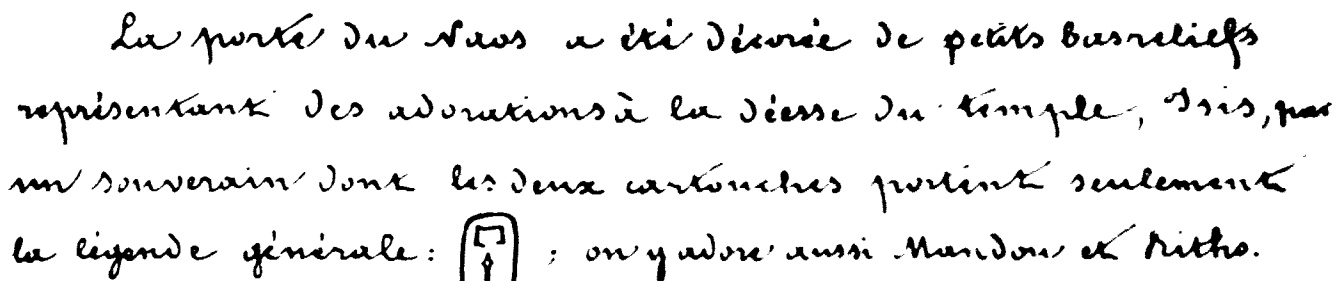 La porte du Naos a été décorée de petits basreliefs
représentant des adorations à la déesse du temple, Isis, par
un souverain dont les deux cartouches portent seulement
la légende générale: ; on y adore aussi Mandou et Ritho.